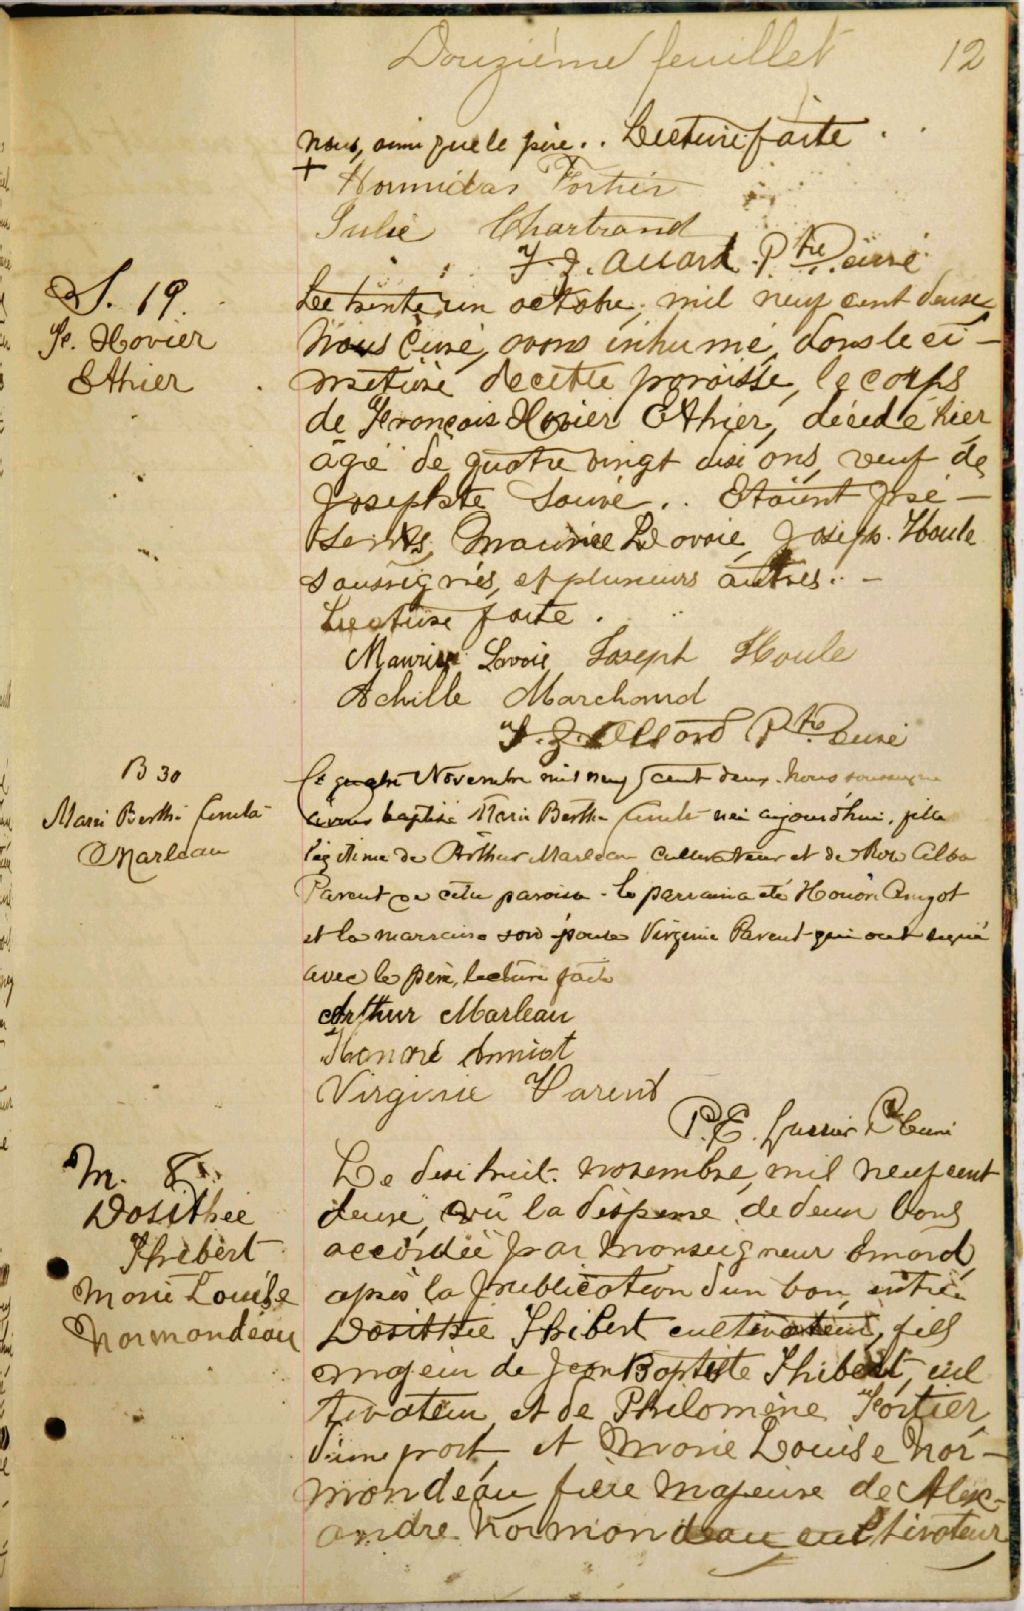 Douzième feuillet 12
nous, ainsi que le père.. Lecture faite.
+ Hormidas Fortier
Julie Chartrand
F. Z. Allard Ptre Curé
S. 19.
Fr. Xavier
Ethier
Le trente un octobre, mil neuf cent deux,
Nous Curé, avons inhumé, dans le ci-
metière de cette paroisse, le corps
de François Xavier Ethier, décédé hier
âgé de quatre vingt dix ans, veuf de
Josephte Sauvé.. Etaient pré-
sents, Maurice Lavoie, Joseph Houle
soussignés, et plusieurs autres.. -
Lecture faite.
Maurice Lavoie Joseph Houle
Achille Marchand
F. Z. Allard Ptre Curé
B 30
Marie Berthe
Marleau
Le quatre Novembre mil neuf cent deux Nous soussigné
avons baptisé Marie Berthe née aujourd'hui, fille
légitime de Arthur Marleau cultivateur et de Rose Alba
Parent de cette paroisse - le parrain a été Honoré Amyot
et la marraine son épouse Virginie Parent qui ont signé
avec le père, lecture faite
Arthur Marleau
Honoré Amiot
Virginie Parent
P. E. Lussier Ptre Curé
M. 8.
Dosithée
Thibert
Marie Louise
Normandeau
Le dix huit novembre, mil neuf cent
deux, vû la dispense de deux bans
accordée par Monseigneur Emard,
après la publication d'un ban entre
Dosithée Thibert cultivateur, fils
majeur de Jean Baptiste Thibert, cul
tivateur, et de Philomène Fortier,
d'une part, et Marie Louise Nor-
mandeau, fille majeure de Alex-
andre Normandeau cultivateur